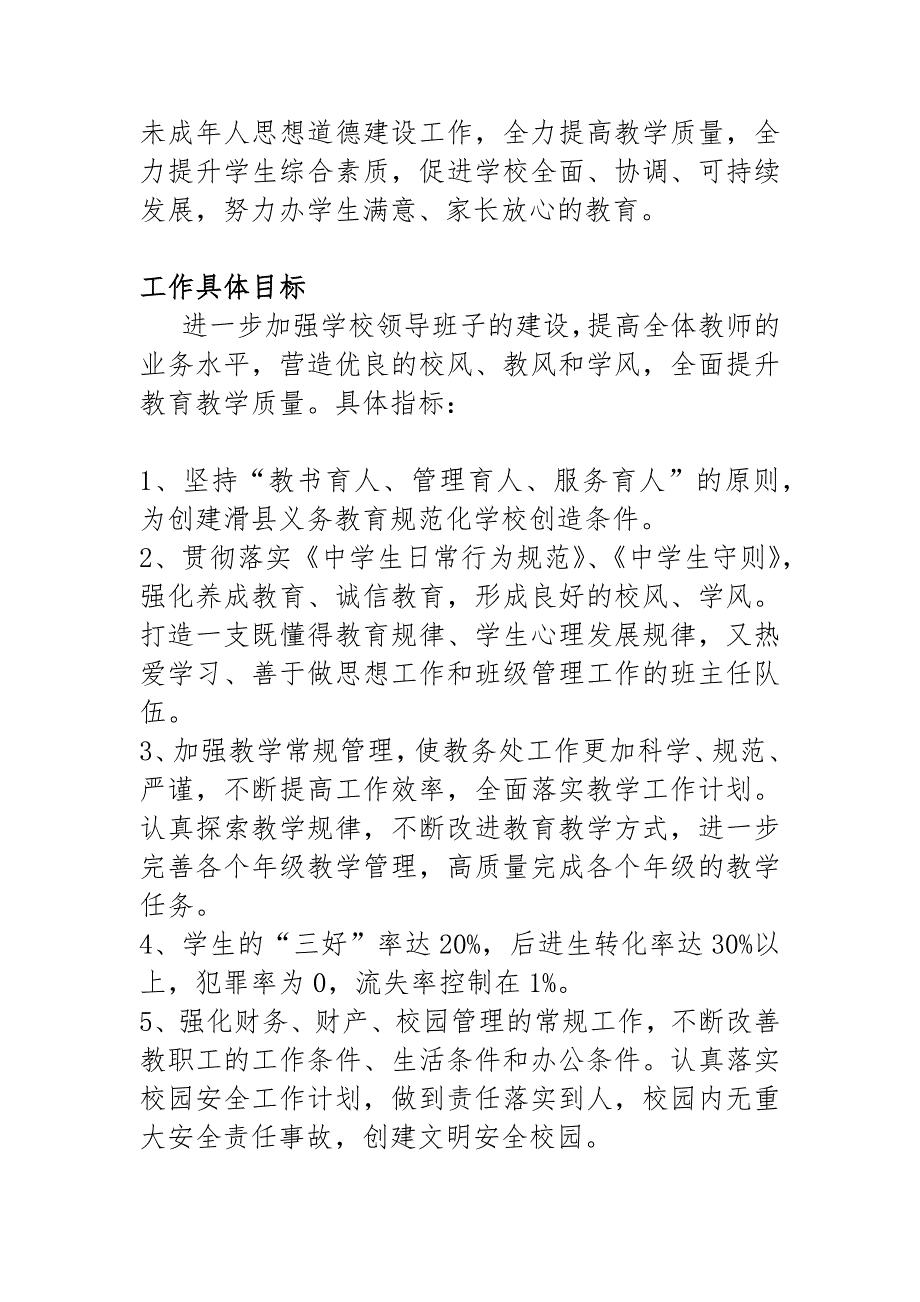 未成年人思想道德建设工作，全力提高教学质量，全
力提升学生综合素质，促进学校全面、协调、可持续
发展，努力办学生满意、家长放心的教育。
工作具体目标
进一步加强学校领导班子的建设，提高全体教师的
业务水平，营造优良的校风、教风和学风，全面提升
教育教学质量。具体指标：
1、坚持“教书育人、管理育人、服务育人”的原则，
为创建滑县义务教育规范化学校创造条件。
2、贯彻落实《中学生日常行为规范》、《中学生守则》，
强化养成教育、诚信教育，形成良好的校风、学风。
打造一支既懂得教育规律、学生心理发展规律，又热
爱学习、善于做思想工作和班级管理工作的班主任队
伍。
3、加强教学常规管理，使教务处工作更加科学、规范、
严谨，不断提高工作效率，全面落实教学工作计划。
认真探索教学规律，不断改进教育教学方式，进一步
完善各个年级教学管理，高质量完成各个年级的教学
任务。
4、学生的“三好”率达20%，后进生转化率达30%以
上，犯罪率为0，流失率控制在1%。
5、强化财务、财产、校园管理的常规工作，不断改善
教职工的工作条件、生活条件和办公条件。认真落实
校园安全工作计划，做到责任落实到人，校园内无重
大安全责任事故，创建文明安全校园。